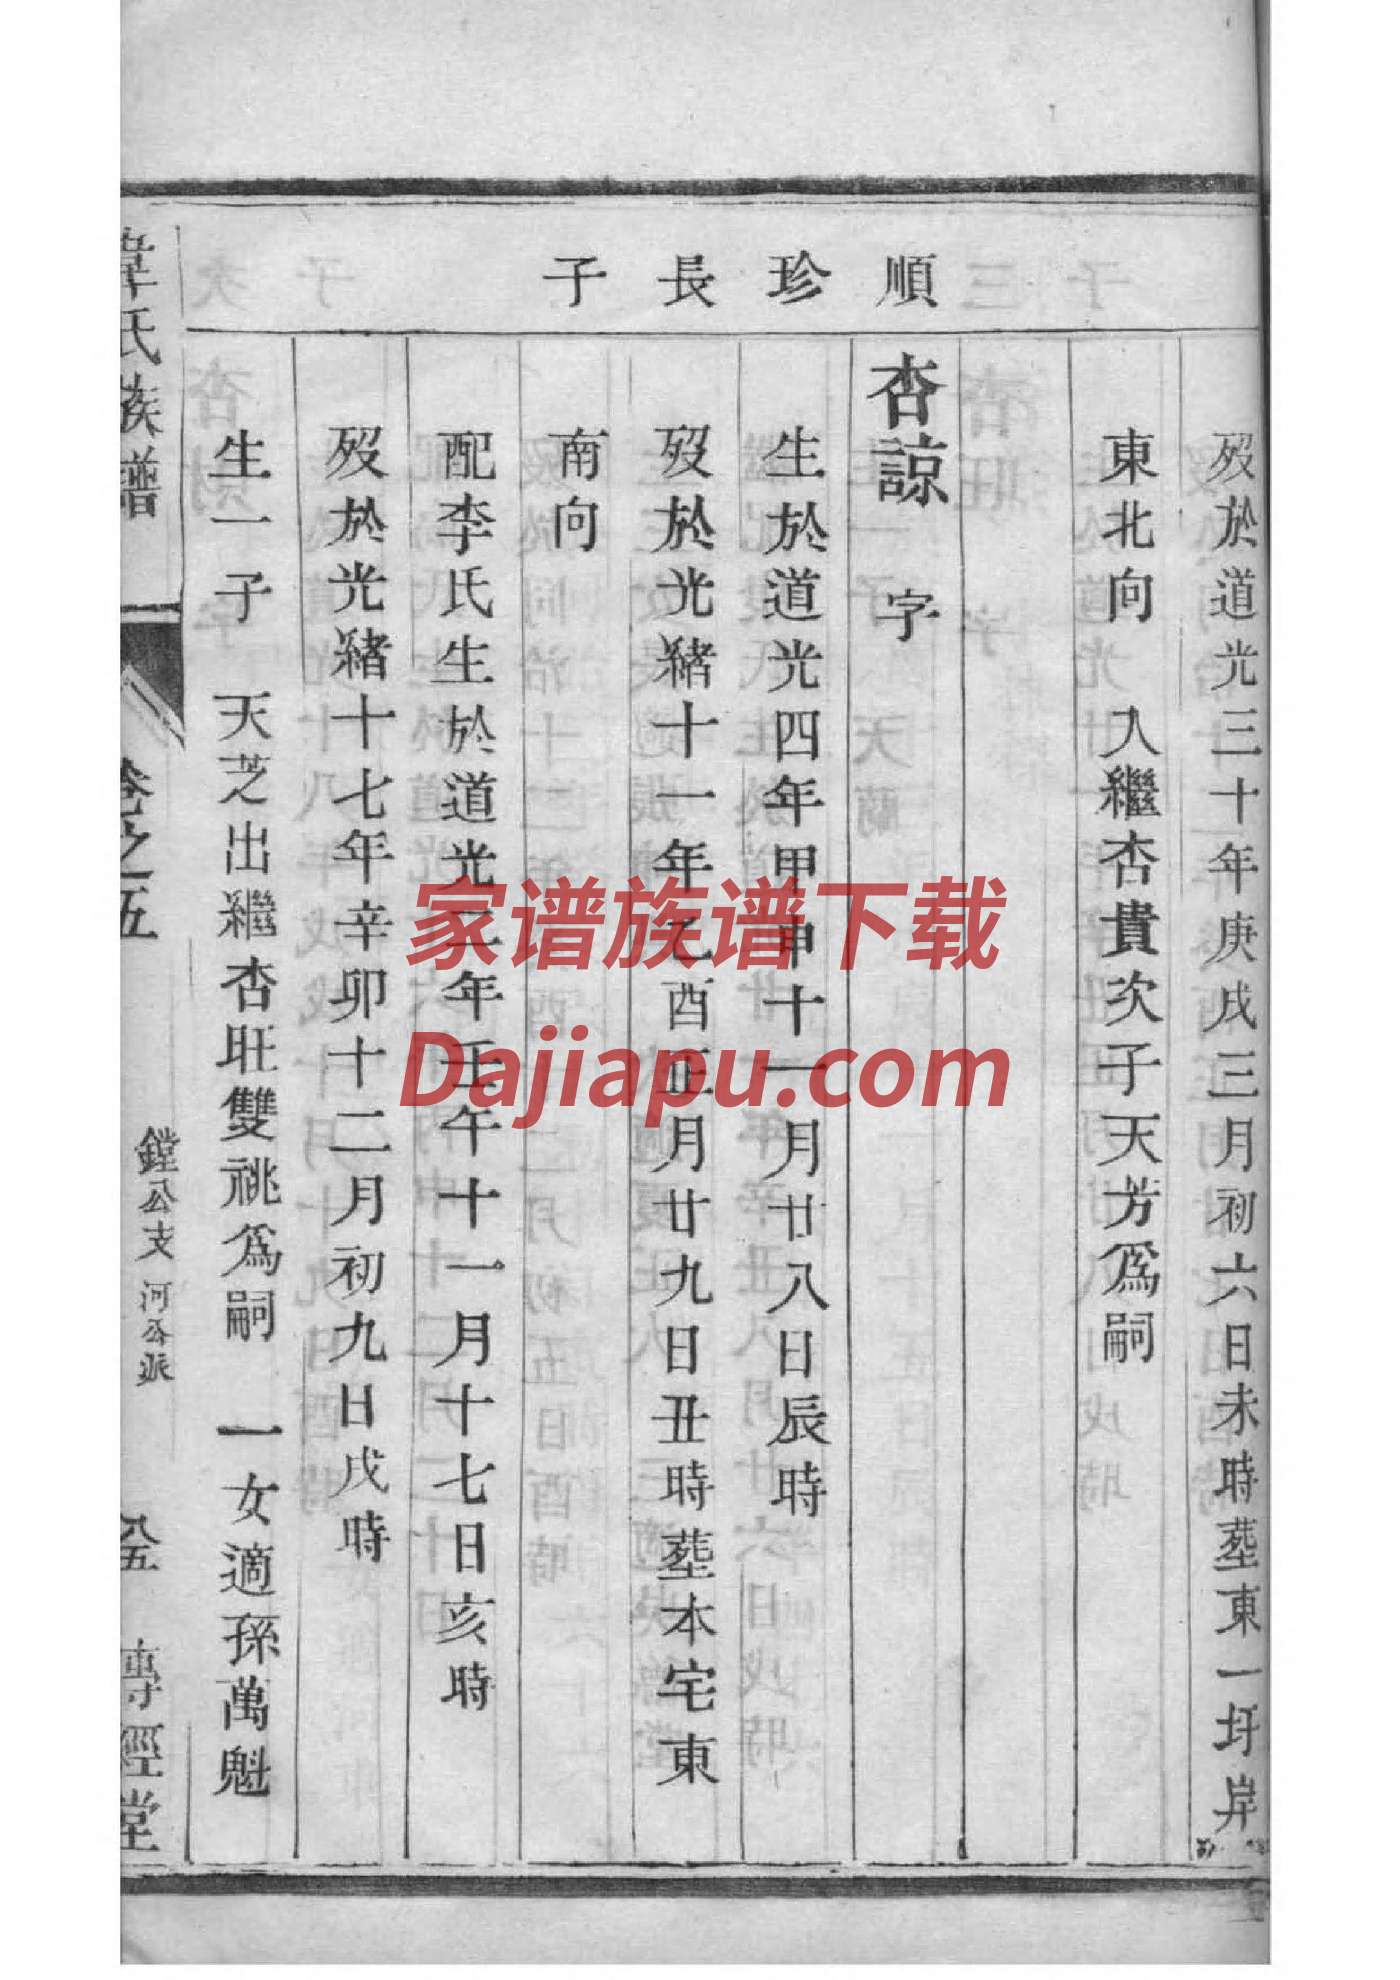 歿於道光三十年庚戌三月初六日未時塟東一圩岸
東北向　入繼杏貴次子天芳爲嗣
順珍長子
杏諒　字
生於道光四年甲申十一月廿八日辰時
歿於光緒十一年乙酉正月廿九日丑時塟本宅東
南向
配李氏生於道光二年壬午十一月十七日亥時
歿於光緒十七年辛卯十二月初九日戌時
生一子　天芝出繼杏旺雙祧爲嗣　一女適孫萬魁
韋氏族譜　卷之五　鏜公支　河公派　八五　傳經堂
家谱族谱下载
Dajiapu.com